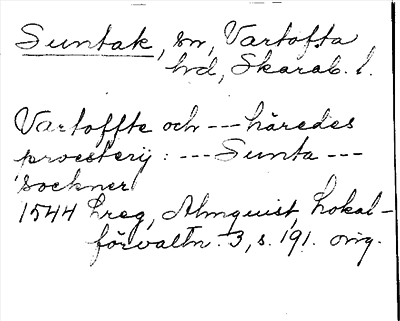 Suntak, sn, Vartofta
hd, Skarab. l.
Vartoffte och --- häredes
proesterij: --- Sunta ---
sockner
1544 Lreg, Almquist, Lokal-
förvaltn. 3, s. 191. orig.